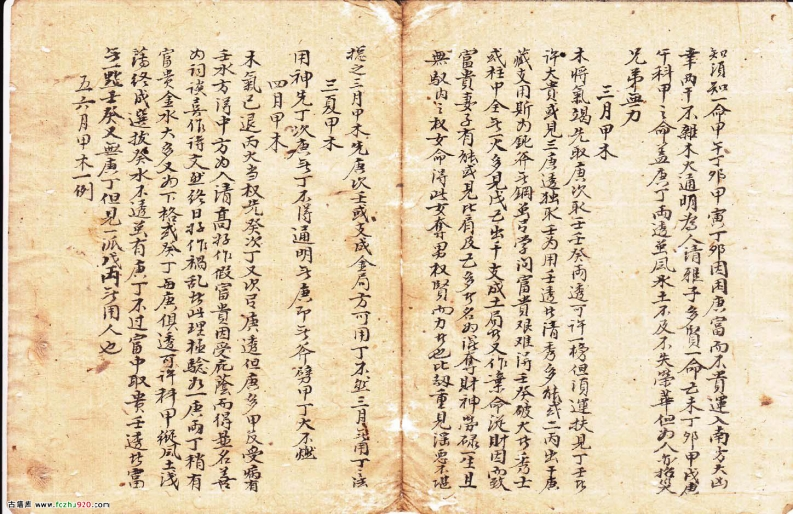 知須知一命甲午 卯甲寅丁卯因困庚富而不貴運入南方大凶
幸兩干不雜木火通明為人清雅子多賢一命己未丁卯甲戌庚
午科甲之命盖庚丁兩透並風水土不及不失榮華但為人 招災
兄弟無力
三月甲木
木將氣竭先取庚次取壬壬癸兩透可許一榜但須運扶見丁壬
許大貴或見二庚透独取壬為用壬透 清秀多能或二丙出干庚
藏支用斯為鈍斧无鋼 學问富貴艰难得壬癸破火 秀士
或柱中全无一火多見戊己出干支成土局 又作棄命從財因而致
富貴妻子有能或見比肩及己多 名为 奪財神勞碌一生且
無馭内之权女命得此女奪男权賢而力 也比劫重見淫惡不堪
總之三月甲木先庚次壬或支成金局方可用丁不然三月无用丁之法
三夏甲木
用神先丁次庚无丁不得通明无庚即无斧劈甲丁火不燃
四月甲木
木氣已退丙火当权先癸次丁又次 庚透但庚多甲反受病有
壬水方得中方为入清高好作假富貴因受庇蔭而得显名善
为词讼喜作詩文然终日好作禍乱 此理極驗如一庚丙丁稍有
富貴金水大多又为下格或癸丁与庚俱透可許科甲縱風土浅
薄终成選拔癸水不透並有庚丁不过富中取貴壬透 富
无一點壬癸又無庚丁但見一派戊丙无用人也
五六月甲木一例
古籍 www.fczhu920.com